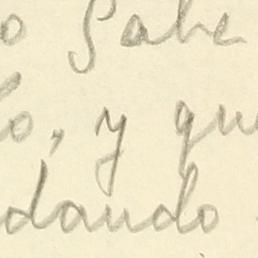 o Sabe
lo, y qu
dando